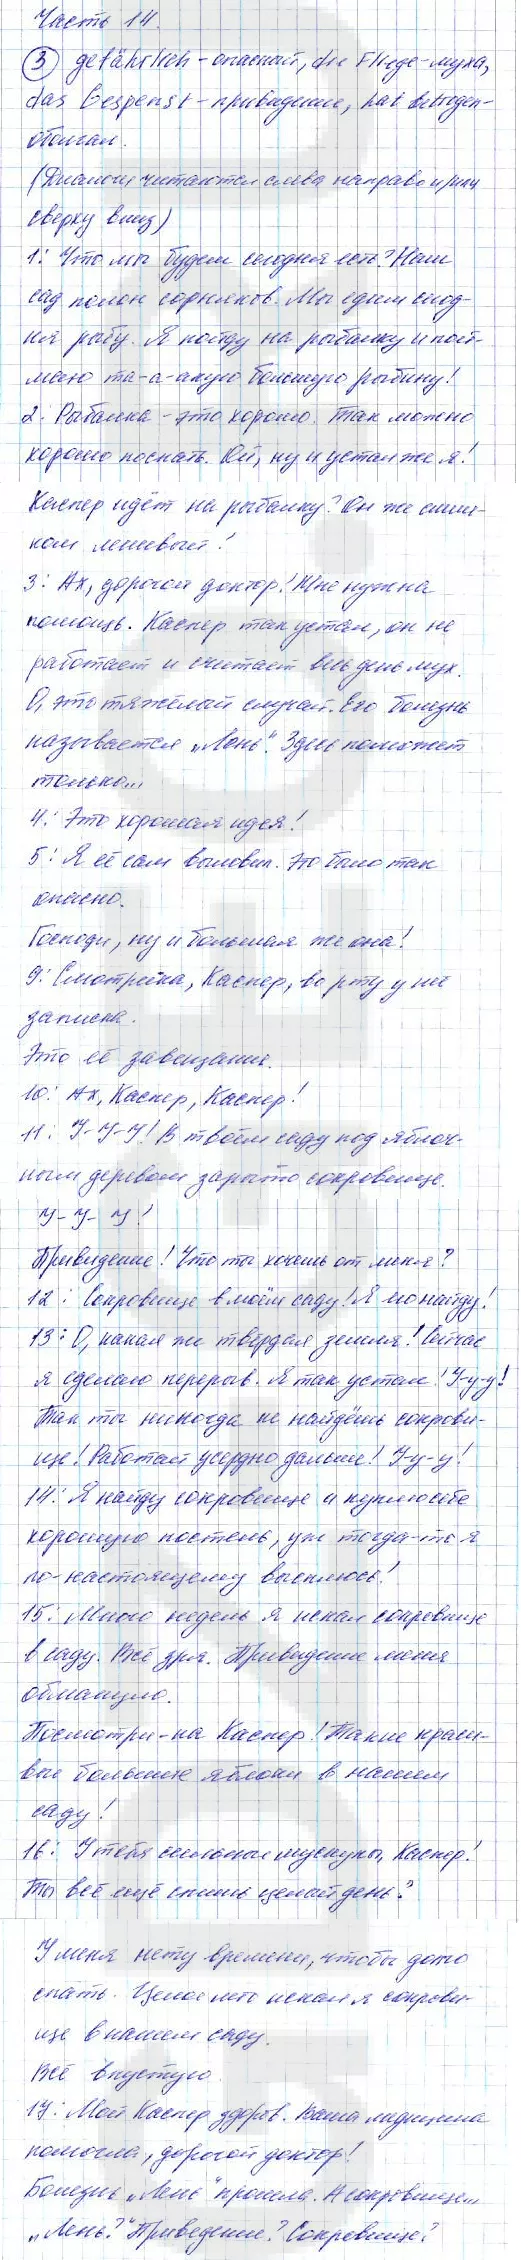 Часть 14.
③ gefährlich - опасный, die Fliege - муха,
das Gespenst - привидение, hat betrogen -
обманул.
(Диалоги читаются слева направо и/или
сверху вниз)
1: Что мы будем сегодня есть? Наш
сад полон сорняков. Мы едим сегод-
ня рыбу. Я пойду на рыбалку и пой-
маю та-а-акую большую рыбину!
2: Рыбалка - это хорошо. Так можно
хорошо поспать. Ой, ну и устал же я!
Каспер идёт на рыбалку? Он же слиш-
ком ленивый!
3: Ах, дорогой доктор! Мне нужна
помощь. Каспер так устал, он не
работает и считает весь день мух.
О, это тяжёлый случай. Его болезнь
называется „Лень". Здесь поможет
только...
4: Это хорошая идея!
5: Я её сам выловил. Это было так
опасно.
Господи, ну и большая же она!
9: Смотри-ка, Каспер, во рту у неё
записка.
Это её завещание.
10: Ах, Каспер, Каспер!
11: У-У-У! В твоём саду под яблоч-
ным деревом зарыто сокровище.
У-У-У!
Привидение! Что ты хочешь от меня?
12: Сокровище в моём саду! Я его найду!
13: О, какая же твёрдая земля! Сейчас
я сделаю перерыв. Я так устал! У-у-у!
Так ты никогда не найдёшь сокрови-
ще! Работай усердно дальше! У-у-у!
14: Я найду сокровище и куплю себе
хорошую постель, уж тогда-то я
по-настоящему высплюсь!
15: Много недель я искал сокровище
в саду. Всё зря. Привидение меня
обмануло.
Посмотри-ка Каспер! Такие краси-
вые большие яблоки в нашем
саду!
16: У тебя сильные мускулы, Каспер!
Ты всё ещё спишь целый день?
У меня нету времени, чтобы долго
спать. Целое лето искал я сокрови-
ще в нашем саду.
Всё впустую.
17: Мой Каспер здоров. Ваша медицина
помогла, дорогой доктор!
Болезнь „Лень" прошла. А сокровище...
„Лень?" Приведение? Сокровище?